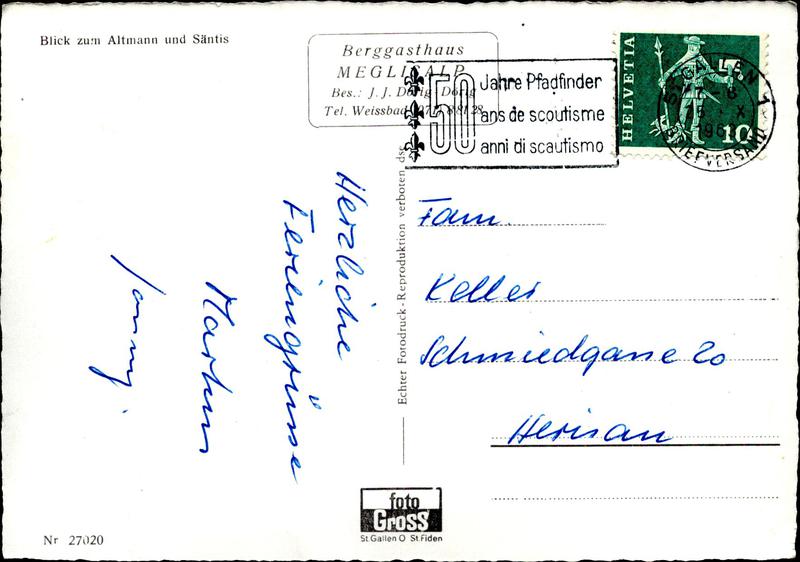 Blick zum Altmann und Säntis
Berggasthaus
MEGLISALP
Bes.: J. J. Dörig-Dörig
Tel. Weissbad
50
Jahre Pfadfinder
ans de scoutisme
anni di scautismo
HELVETIA
10
ST. GALLEN 1
BRIEFVERSAND
Herzliche
Feriengrüsse
Martin
Fam.
Keller
Schmiedgasse 20
Herisau
Echter Fotodruck - Reproduktion verboten
foto
Gross
St.Gallen O St.Fiden
Nr 27020